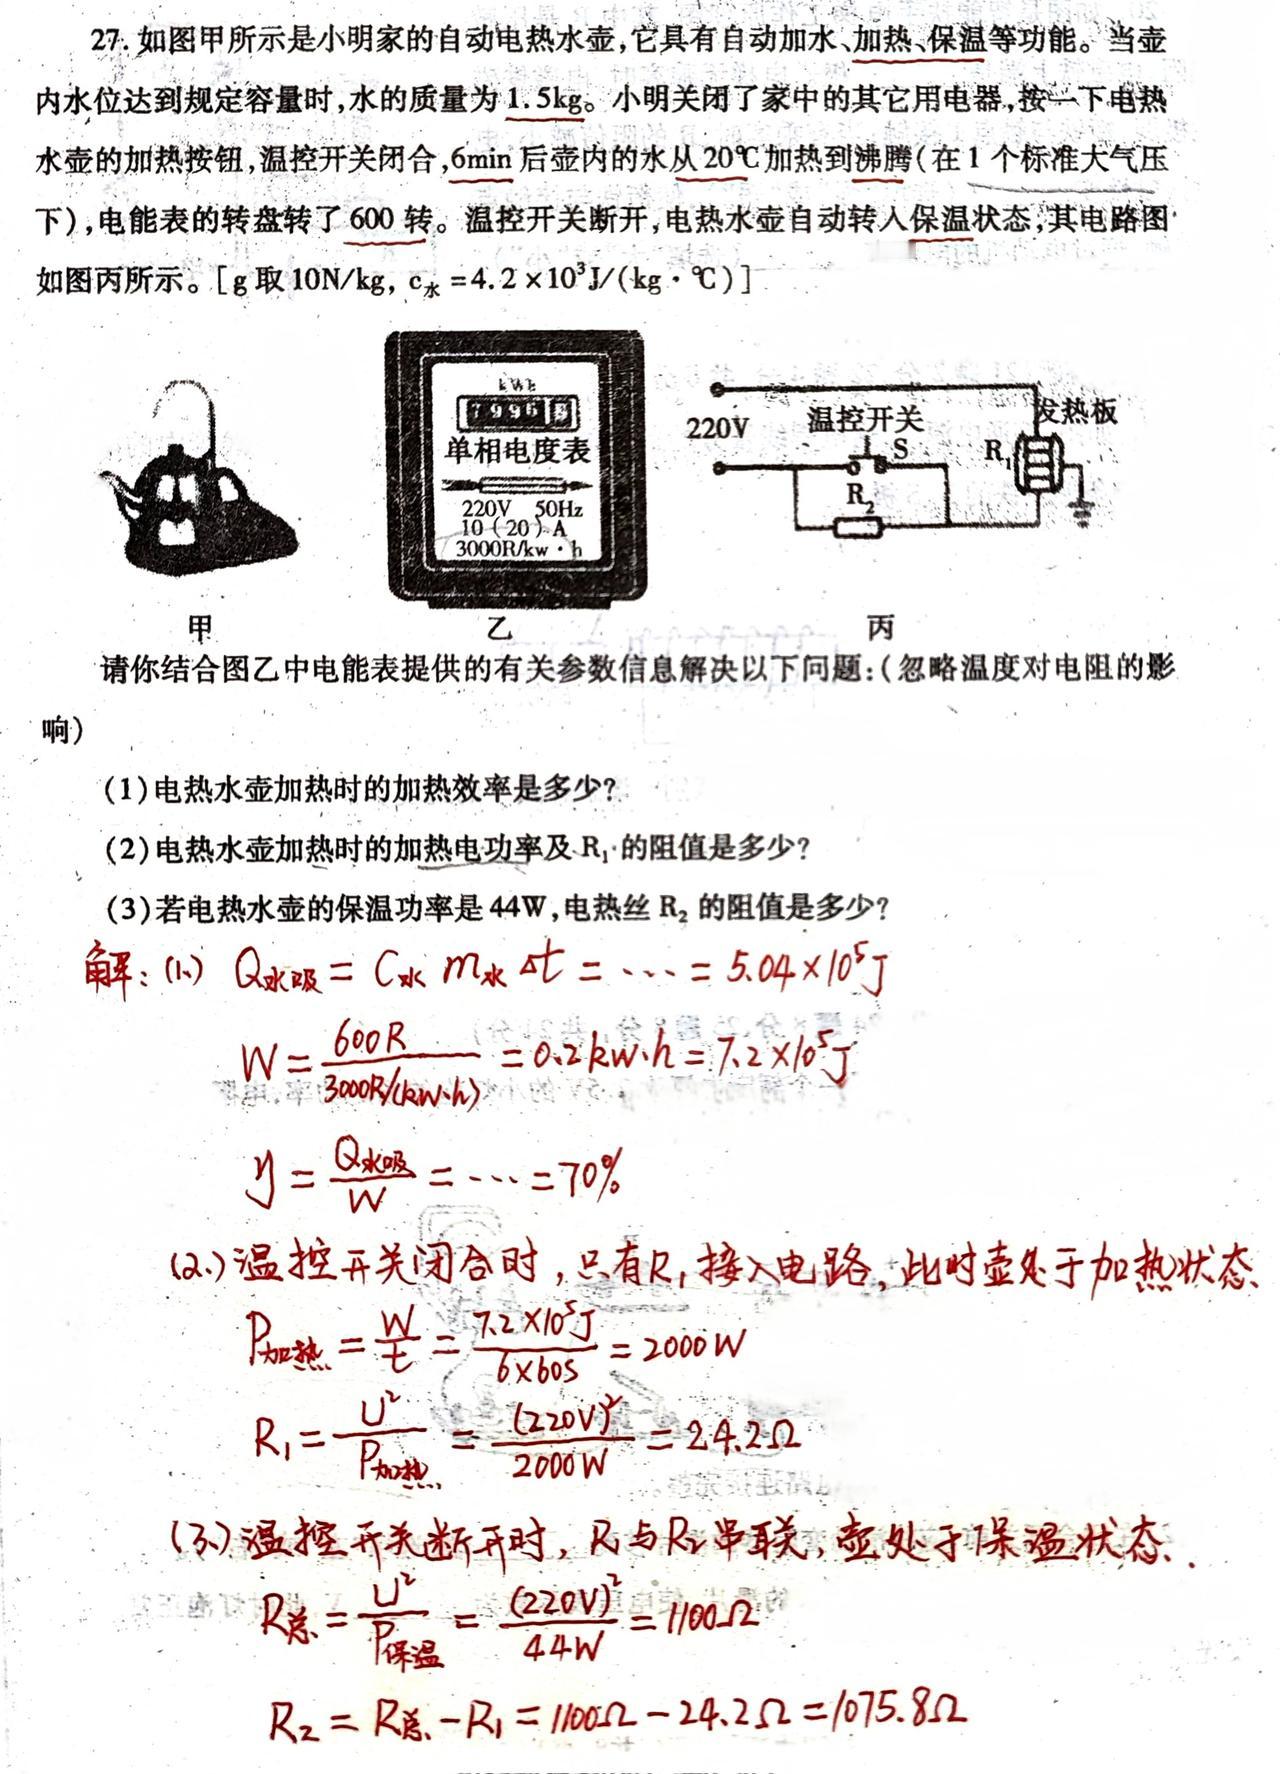 27. 如图甲所示是小明家的自动电热水壶,它具有自动加水、加热、保温等功能。当壶
内水位达到规定容量时,水的质量为1.5kg。小明关闭了家中的其它用电器,按一下电热
水壶的加热按钮,温控开关闭合,6min后壶内的水从20℃加热到沸腾(在1个标准大气压
下),电能表的转盘转了600转。温控开关断开,电热水壶自动转入保温状态,其电路图
如图丙所示。[g取10N/kg, c水=4.2×10³J/(kg·℃)]
kWh
7996
单相电度表
220V 50Hz
10(20)A
3000R/kw·h
220V
温控开关
S
R₂
发热板
R₁
甲 乙 丙
请你结合图乙中电能表提供的有关参数信息解决以下问题:(忽略温度对电阻的影
响)
(1)电热水壶加热时的加热效率是多少?
(2)电热水壶加热时的加热电功率及R₁的阻值是多少?
(3)若电热水壶的保温功率是44W,电热丝R₂的阻值是多少?
解:(1.) Q水吸=C水m水Δt=···=5.04×10⁵J
W=600R/3000R/(kw·h)=0.2kw·h=7.2×10⁵J
η=Q水吸/W=···=70%
(2.)温控开关闭合时,只有R₁接入电路,此时壶处于加热状态.
P加热=W/t=7.2×10⁵J/6×60s=2000W
R₁=U²/P加热=(220V)²/2000W=24.2Ω
(3.)温控开关断开时,R₁与R₂串联,壶处于保温状态.
R总=U²/P保温=(220V)²/44W=1100Ω
R₂=R总-R₁=1100Ω-24.2Ω=1075.8Ω